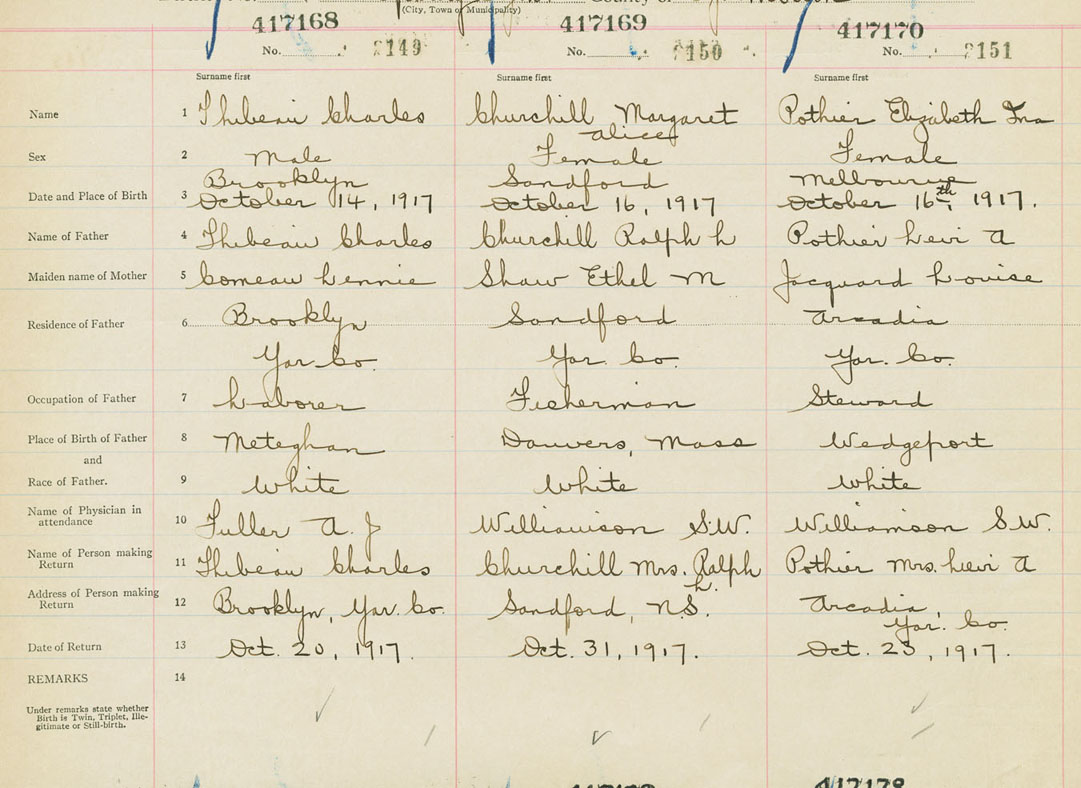 (City, Town or Municipality)
417168 417169 417170
No. 2149 No. 2150 No. 2151
Surname first Surname first Surname first
Name 1 Thibeau Charles Churchill Margaret Alice Pothier Elizabeth Ina
Sex 2 Male Female Female
Brooklyn Sandford Melbourne
Date and Place of Birth 3 October 14, 1917 October 16, 1917 October 16th, 1917.
Name of Father 4 Thibeau Charles Churchill Ralph L Pothier Levi A
Maiden name of Mother 5 Comeau Lennie Shaw Ethel M Jacquard Louise
Residence of Father 6 Brooklyn Sandford Arcadia
Yar Co. Yar. Co. Yar. Co.
Occupation of Father 7 Laborer Fisherman Steward
Place of Birth of Father 8 Meteghan Danvers, Mass Wedgeport
and
Race of Father. 9 White White White
Name of Physician in attendance 10 Fuller A. J Williamson S.W. Williamson S.W.
Name of Person making Return 11 Thibeau Charles Churchill Mrs. Ralph L. Pothier Mrs. Levi A
Address of Person making Return 12 Brooklyn, Yar Co. Sandford, N.S. Arcadia, Yar. Co.
Date of Return 13 Oct. 20, 1917. Oct. 31, 1917. Oct. 23, 1917.
REMARKS 14
Under remarks state whether
Birth is Twin, Triplet, Ille-
gitimate or Still-birth.